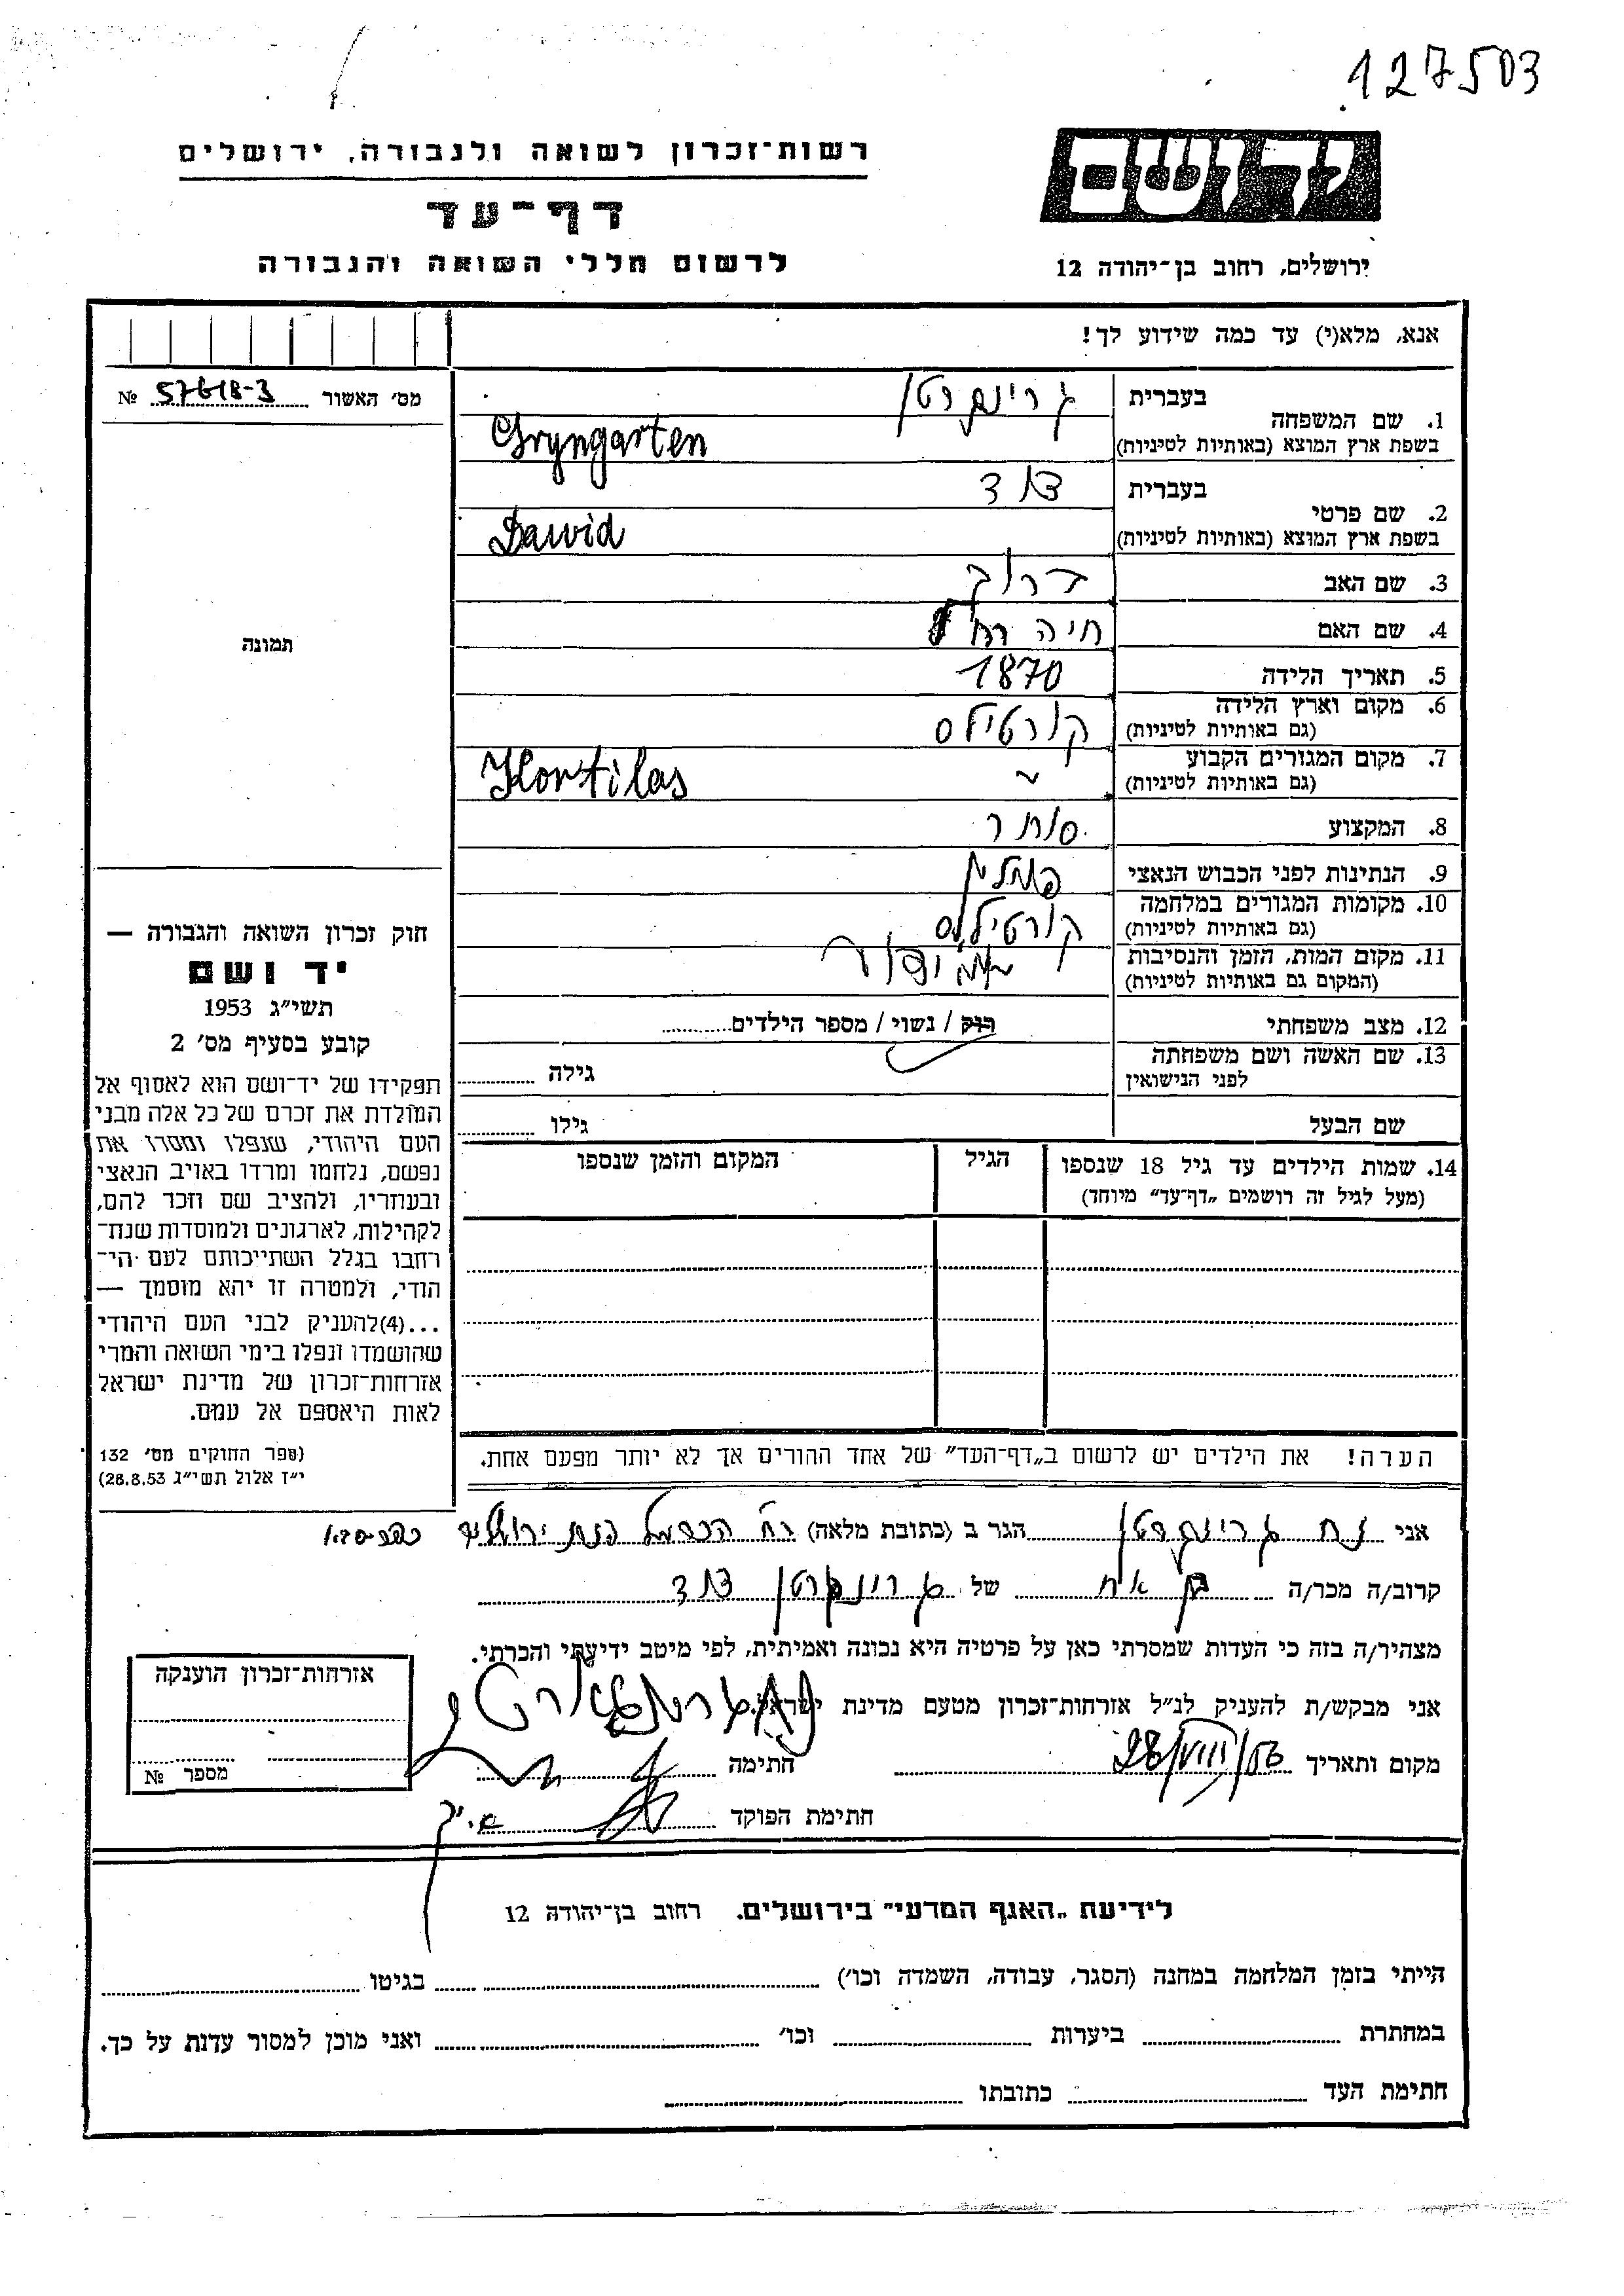 127503
רשות-זכרון לשואה ולגבורה, ירושלים
דף-עד
לרשום חללי השואה והגבורה
יד ושם
ירושלים, רחוב בן-יהודה 12
אנא, מלא(י) עד כמה שידוע לך!
מס׳ האשור 57618-3 №
1. שם המשפחה
בעברית גרינגרטן
בשפת ארץ המוצא (באותיות לטיניות) Gryngarten
2. שם פרטי
בעברית דוד
בשפת ארץ המוצא (באותיות לטיניות) Dawid
3. שם האב
4. שם האם חיה רחל
5. תאריך הלידה 1870
6. מקום וארץ הלידה קורטילס
(גם באותיות לטיניות)
7. מקום המגורים הקבוע ~
(גם באותיות לטיניות) Kortilas
8. המקצוע סוחר
9. הנתינות לפני הכבוש הנאצי פולין
10. מקומות המגורים במלחמה קורטילס
(גם באותיות לטיניות)
11. מקום המות, הזמן והנסיבות
(המקום גם באותיות לטיניות)
12. מצב משפחתי רוק / נשוי / מספר הילדים
13. שם האשה ושם משפחתה
לפני הנישואין גילה
שם הבעל גילו
14. שמות הילדים עד גיל 18 שנספו הגיל המקום והזמן שנספו
(מעל לגיל זה רושמים „דף-עד״ מיוחד)
הערה! את הילדים יש לרשום ב„דף-העד״ של אחד ההורים אך לא יותר מפעם אחת.
תמונה
חוק זכרון השואה והגבורה —
יד ושם
תשי״ג 1953
קובע בסעיף מס׳ 2
תפקידו של יד-ושם הוא לאסוף אל
המולדת את זכרם של כל אלה מבני
העם היהודי, שנפלו ומסרו את
נפשם, נלחמו ומרדו באויב הנאצי
ובעוזריו, ולהציב שם וזכר להם,
לקהילות, לארגונים ולמוסדות שנח-
רבו בגלל השתייכותם לעם הי-
הודי, ולמטרה זו יהא מוסמך —
...(4) להעניק לבני העם היהודי
שהושמדו ונפלו בימי השואה והמרי
אזרחות-זכרון של מדינת ישראל
לאות היאספם אל עמם.
(ספר החוקים מס׳ 132
י״ז אלול תשי״ג 28.8.53)
אני נח גרינגרטן הגר ב (כתובת מלאה) רח׳ הכרמל
קרוב/ה מכר/ה בן אח של גרינגרטן דוד
מצהיר/ה בזה כי העדות שמסרתי כאן על פרטיה היא נכונה ואמיתית, לפי מיטב ידיעתי והכרתי.
אני מבקש/ת להעניק לנ״ל אזרחות-זכרון מטעם מדינת ישראל.
מקום ותאריך 28/VIII/56 חתימה
חתימת הפוקד
אזרחות-זכרון הוענקה
מספר №
לידיעת „האגף המדעי״ בירושלים, רחוב בן-יהודה 12
הייתי בזמן המלחמה במחנה (הסגר, עבודה, השמדה וכו׳) בגיטו
במחתרת ביערות וכו׳ ואני מוכן למסור עדות על כך.
חתימת העד כתובתו